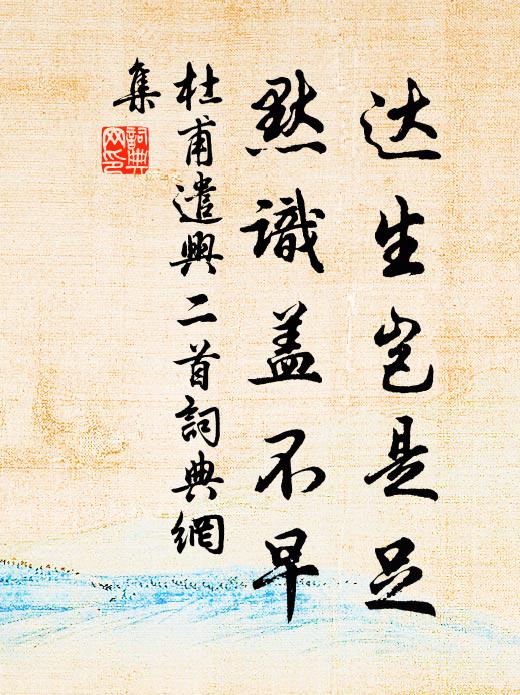 达生岂是足
默識盖不早
杜甫遣興二首詞典網
集
詞典網印